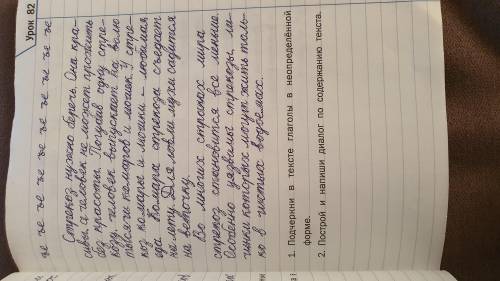 Урок 82
ъе ъе ъе ъе ъе ъе ъе ъе ъе ъе
Стрекоз нужно беречь. Они кра-
сивы, а человек не может прожить
без красоты. Погубив одну стре-
козу, человек выпускает на волю
тысячи комаров и мошек. У стре-
коз комары и мошки – любимая
еда. Комара стрекоза съедает
на лету. Для ловли мухи садится
на веточку.
Во многих странах мира
стрекоз становится всё меньше.
Особенно уязвимы стрекозы, ли-
чинки которых могут жить толь-
ко в чистых водоёмах.
1. Подчеркни в тексте глаголы в неопределённой
форме.
2. Построй и напиши диалог по содержанию текста.